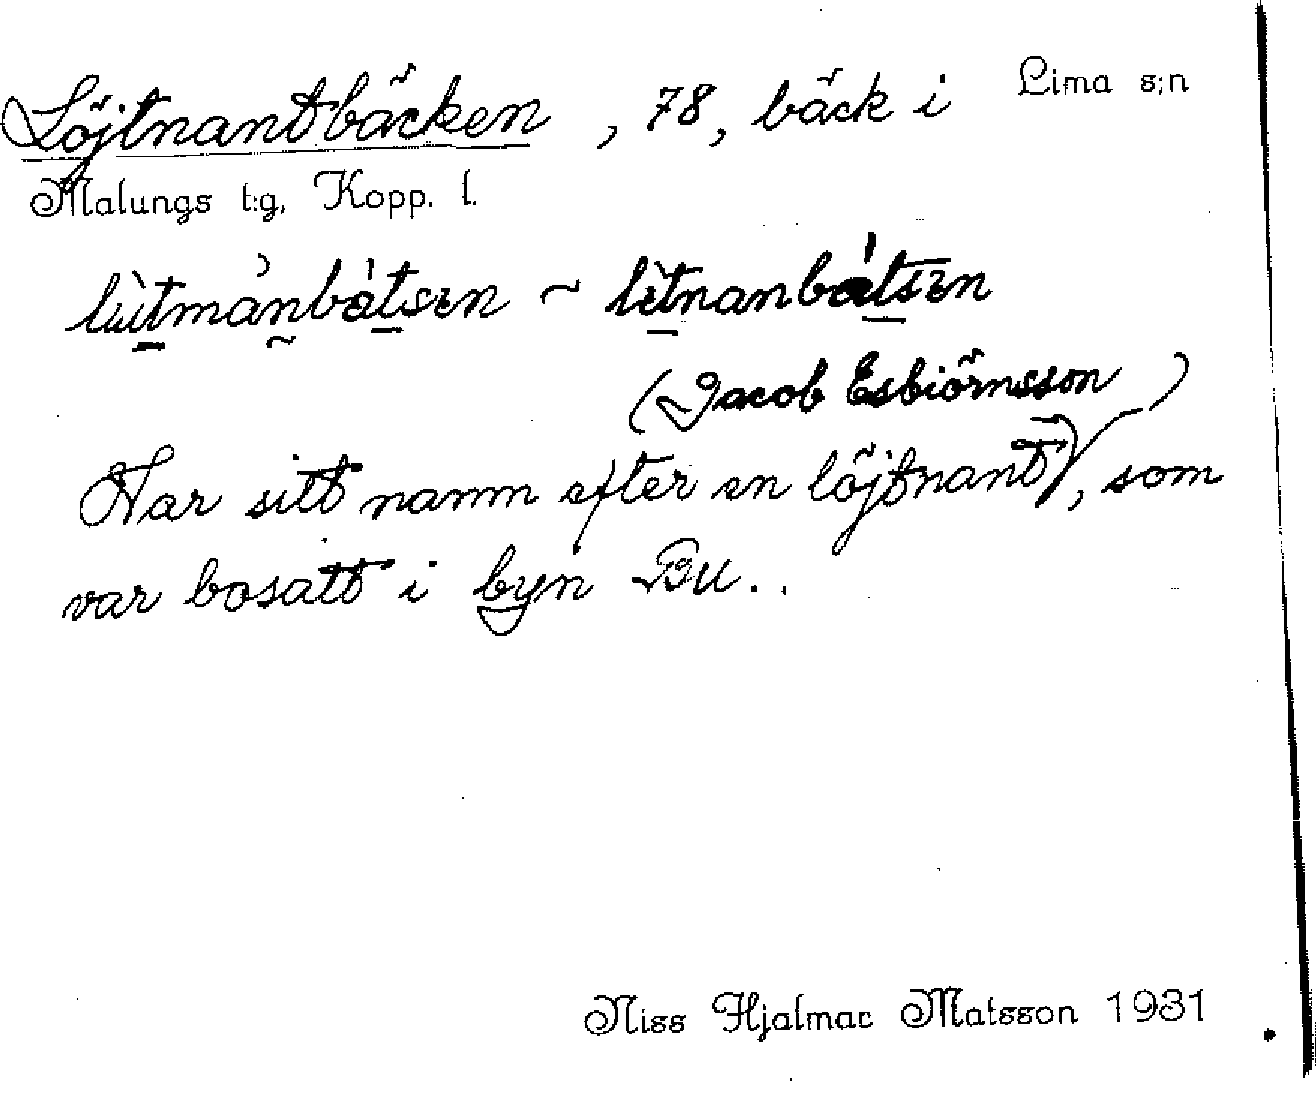 Löjtnantbäcken, 78, bäck i Lima s:n
Malungs t:g, Kopp. l.
~
(Jacob Esbiörnsson)
Har sitt namn efter en löjtnant, som
var bosatt i byn Bu..
Niss Hjalmar Matsson 1931